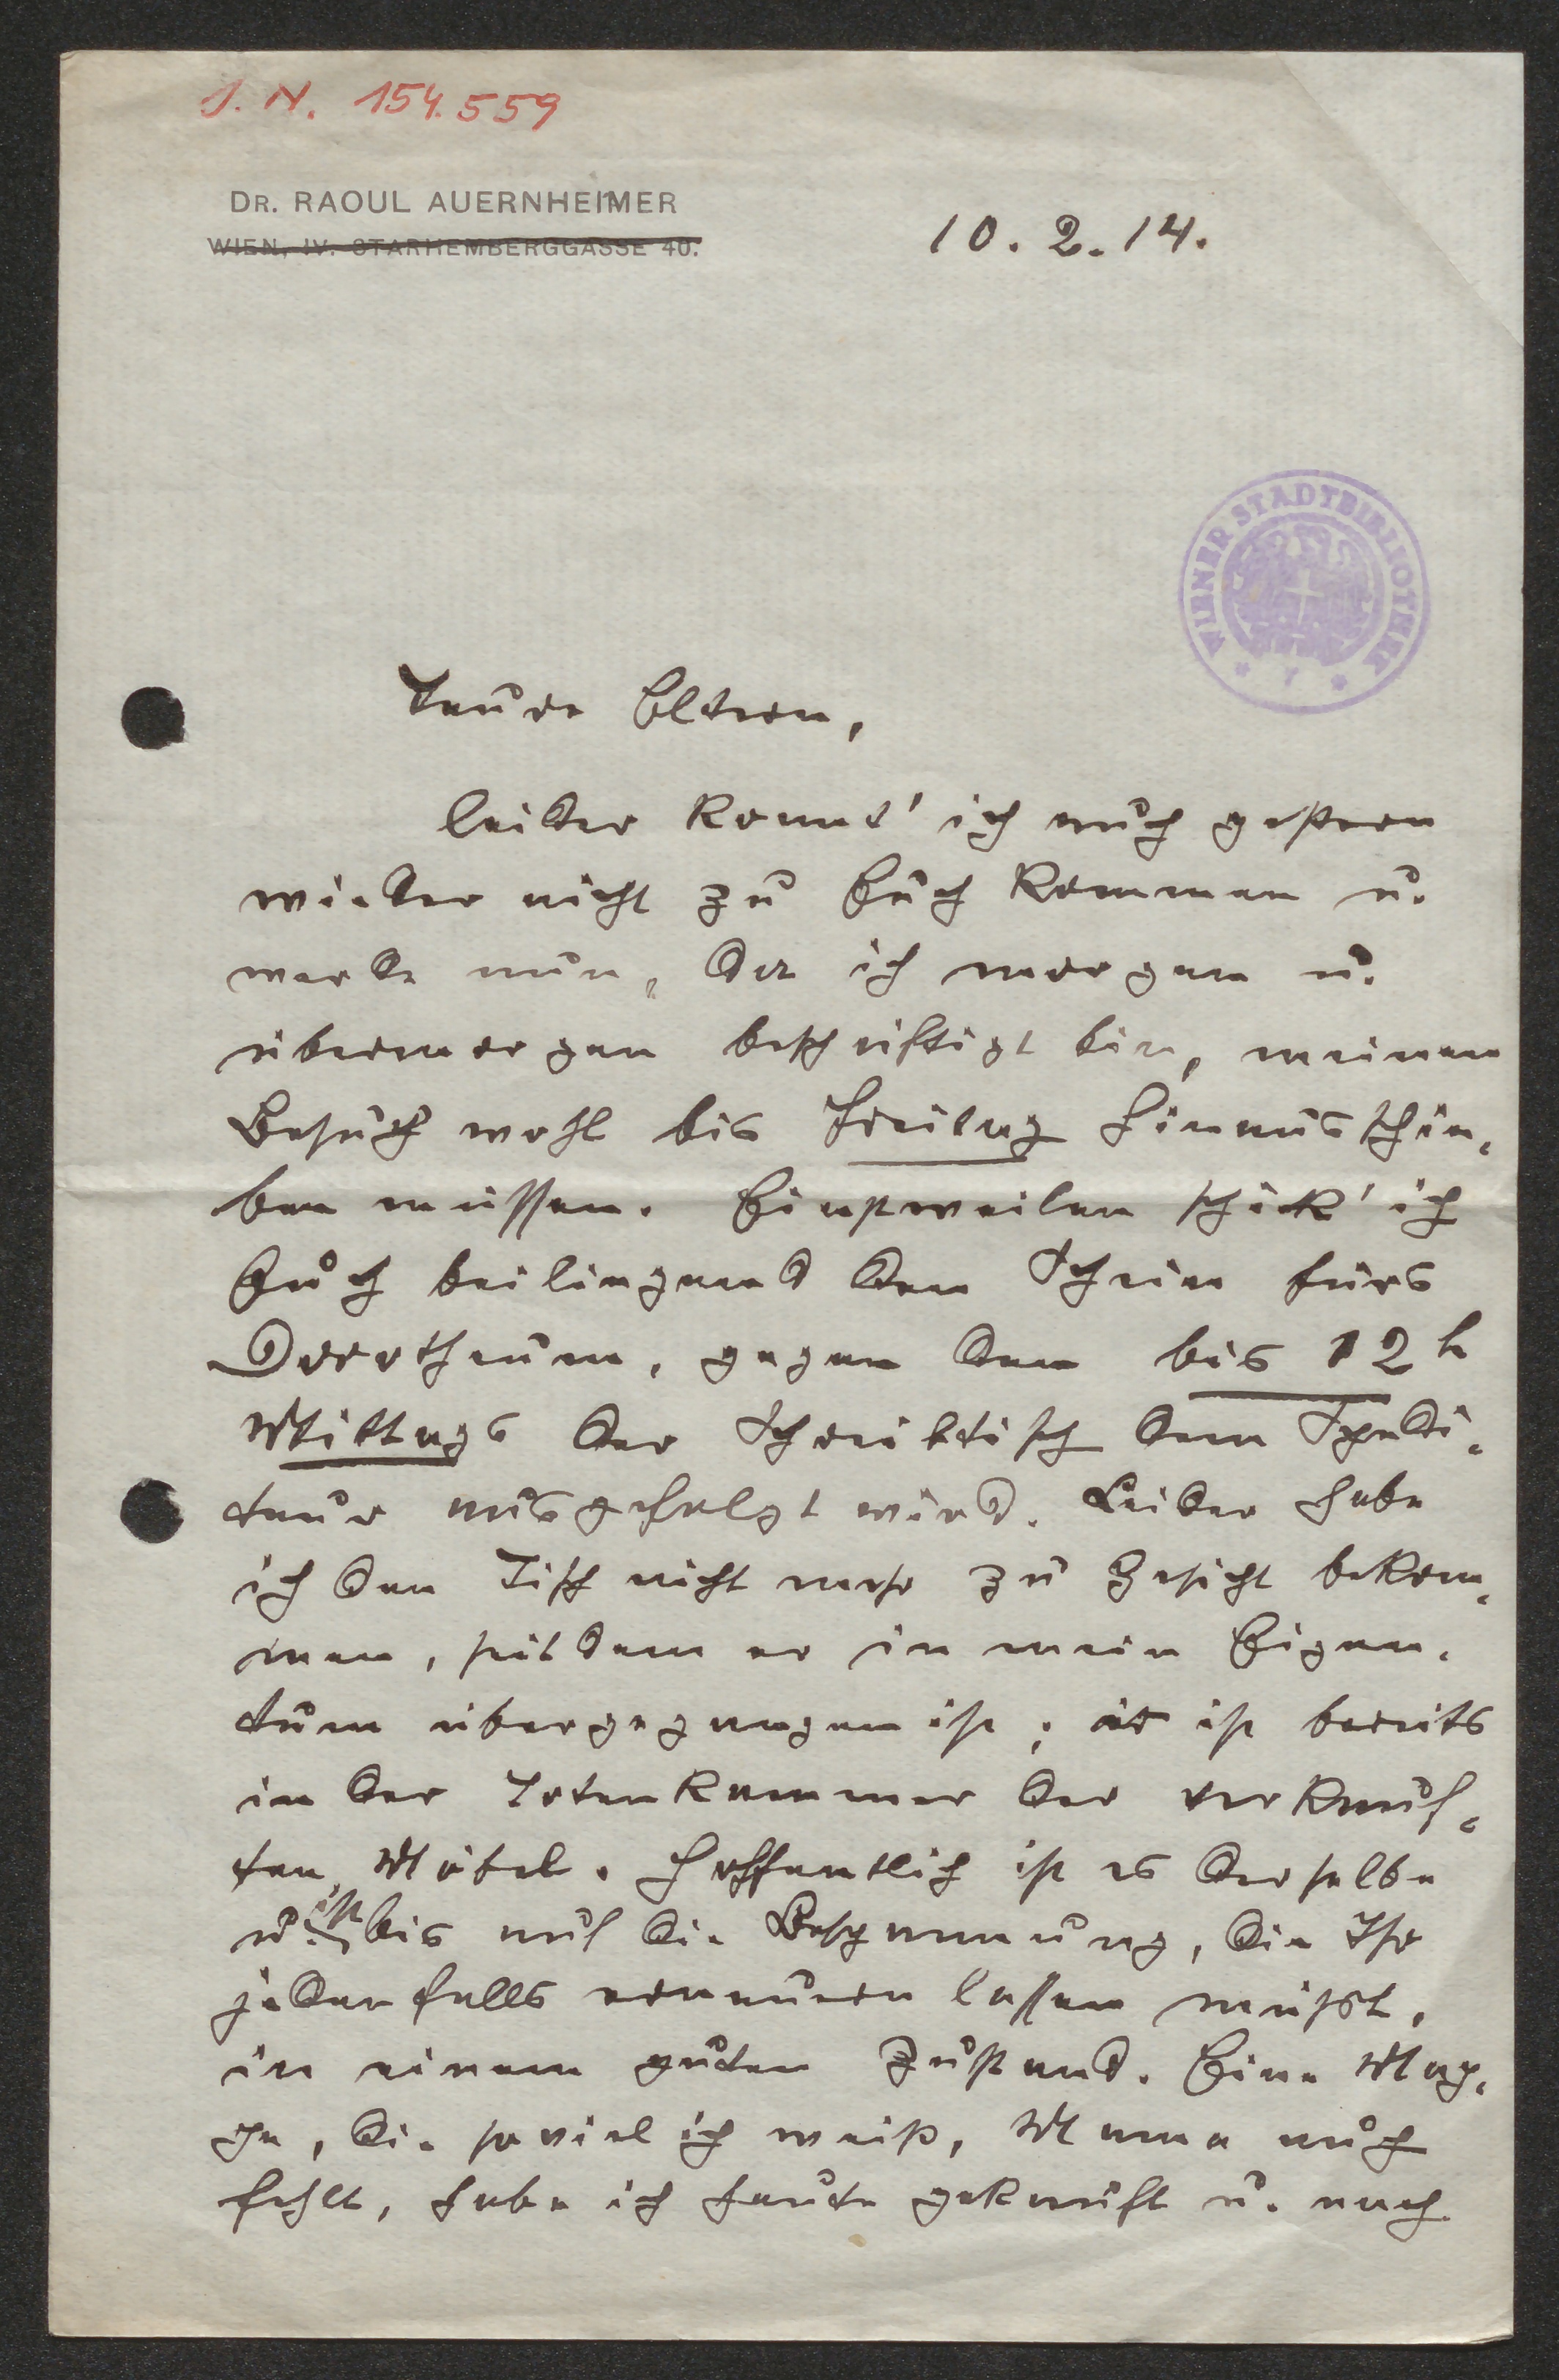 J. N. 154.559
DR. RAOUL AUERNHEIMER
WIEN, IV. STARHEMBERGGASSE 40.
10. 2. 14.
WIENER STADTBIBLIOTHEK
Teure Eltern,
leider konnt' ich auch gestern
wieder nicht zu Euch kommen u.
werde nun, da ich morgen u.
übermorgen beschäftigt bin, meinen
Besuch wohl bis Freitag hinausschie-
ben müssen. Einstweilen schick' ich
Euch beiliegend den Schein fürs
Dorotheum, gegen den bis 12 h
Mittags der Schreibtisch dem Spedi-
teur ausgefolgt wird. Leider habe
ich den Tisch nicht mehr zu Gesicht bekom-
men, seitdem er in mein Eigen-
tum übergegangen ist; er ist bereits
in der Totenkammer der verkauf-
ten Möbel. Hoffentlich ist es derselbe
u. ist bis auf die Bespannung, die Ihr
jedenfalls erneuern lassen müßt,
in einem guten Zustand. Eine Map-
pe, die soviel ich weiß, Mama auch
fehlt, habe ich heute gekauft u. auch